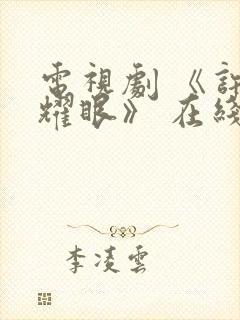 電視劇《許
耀眼》在綫
李凌雲